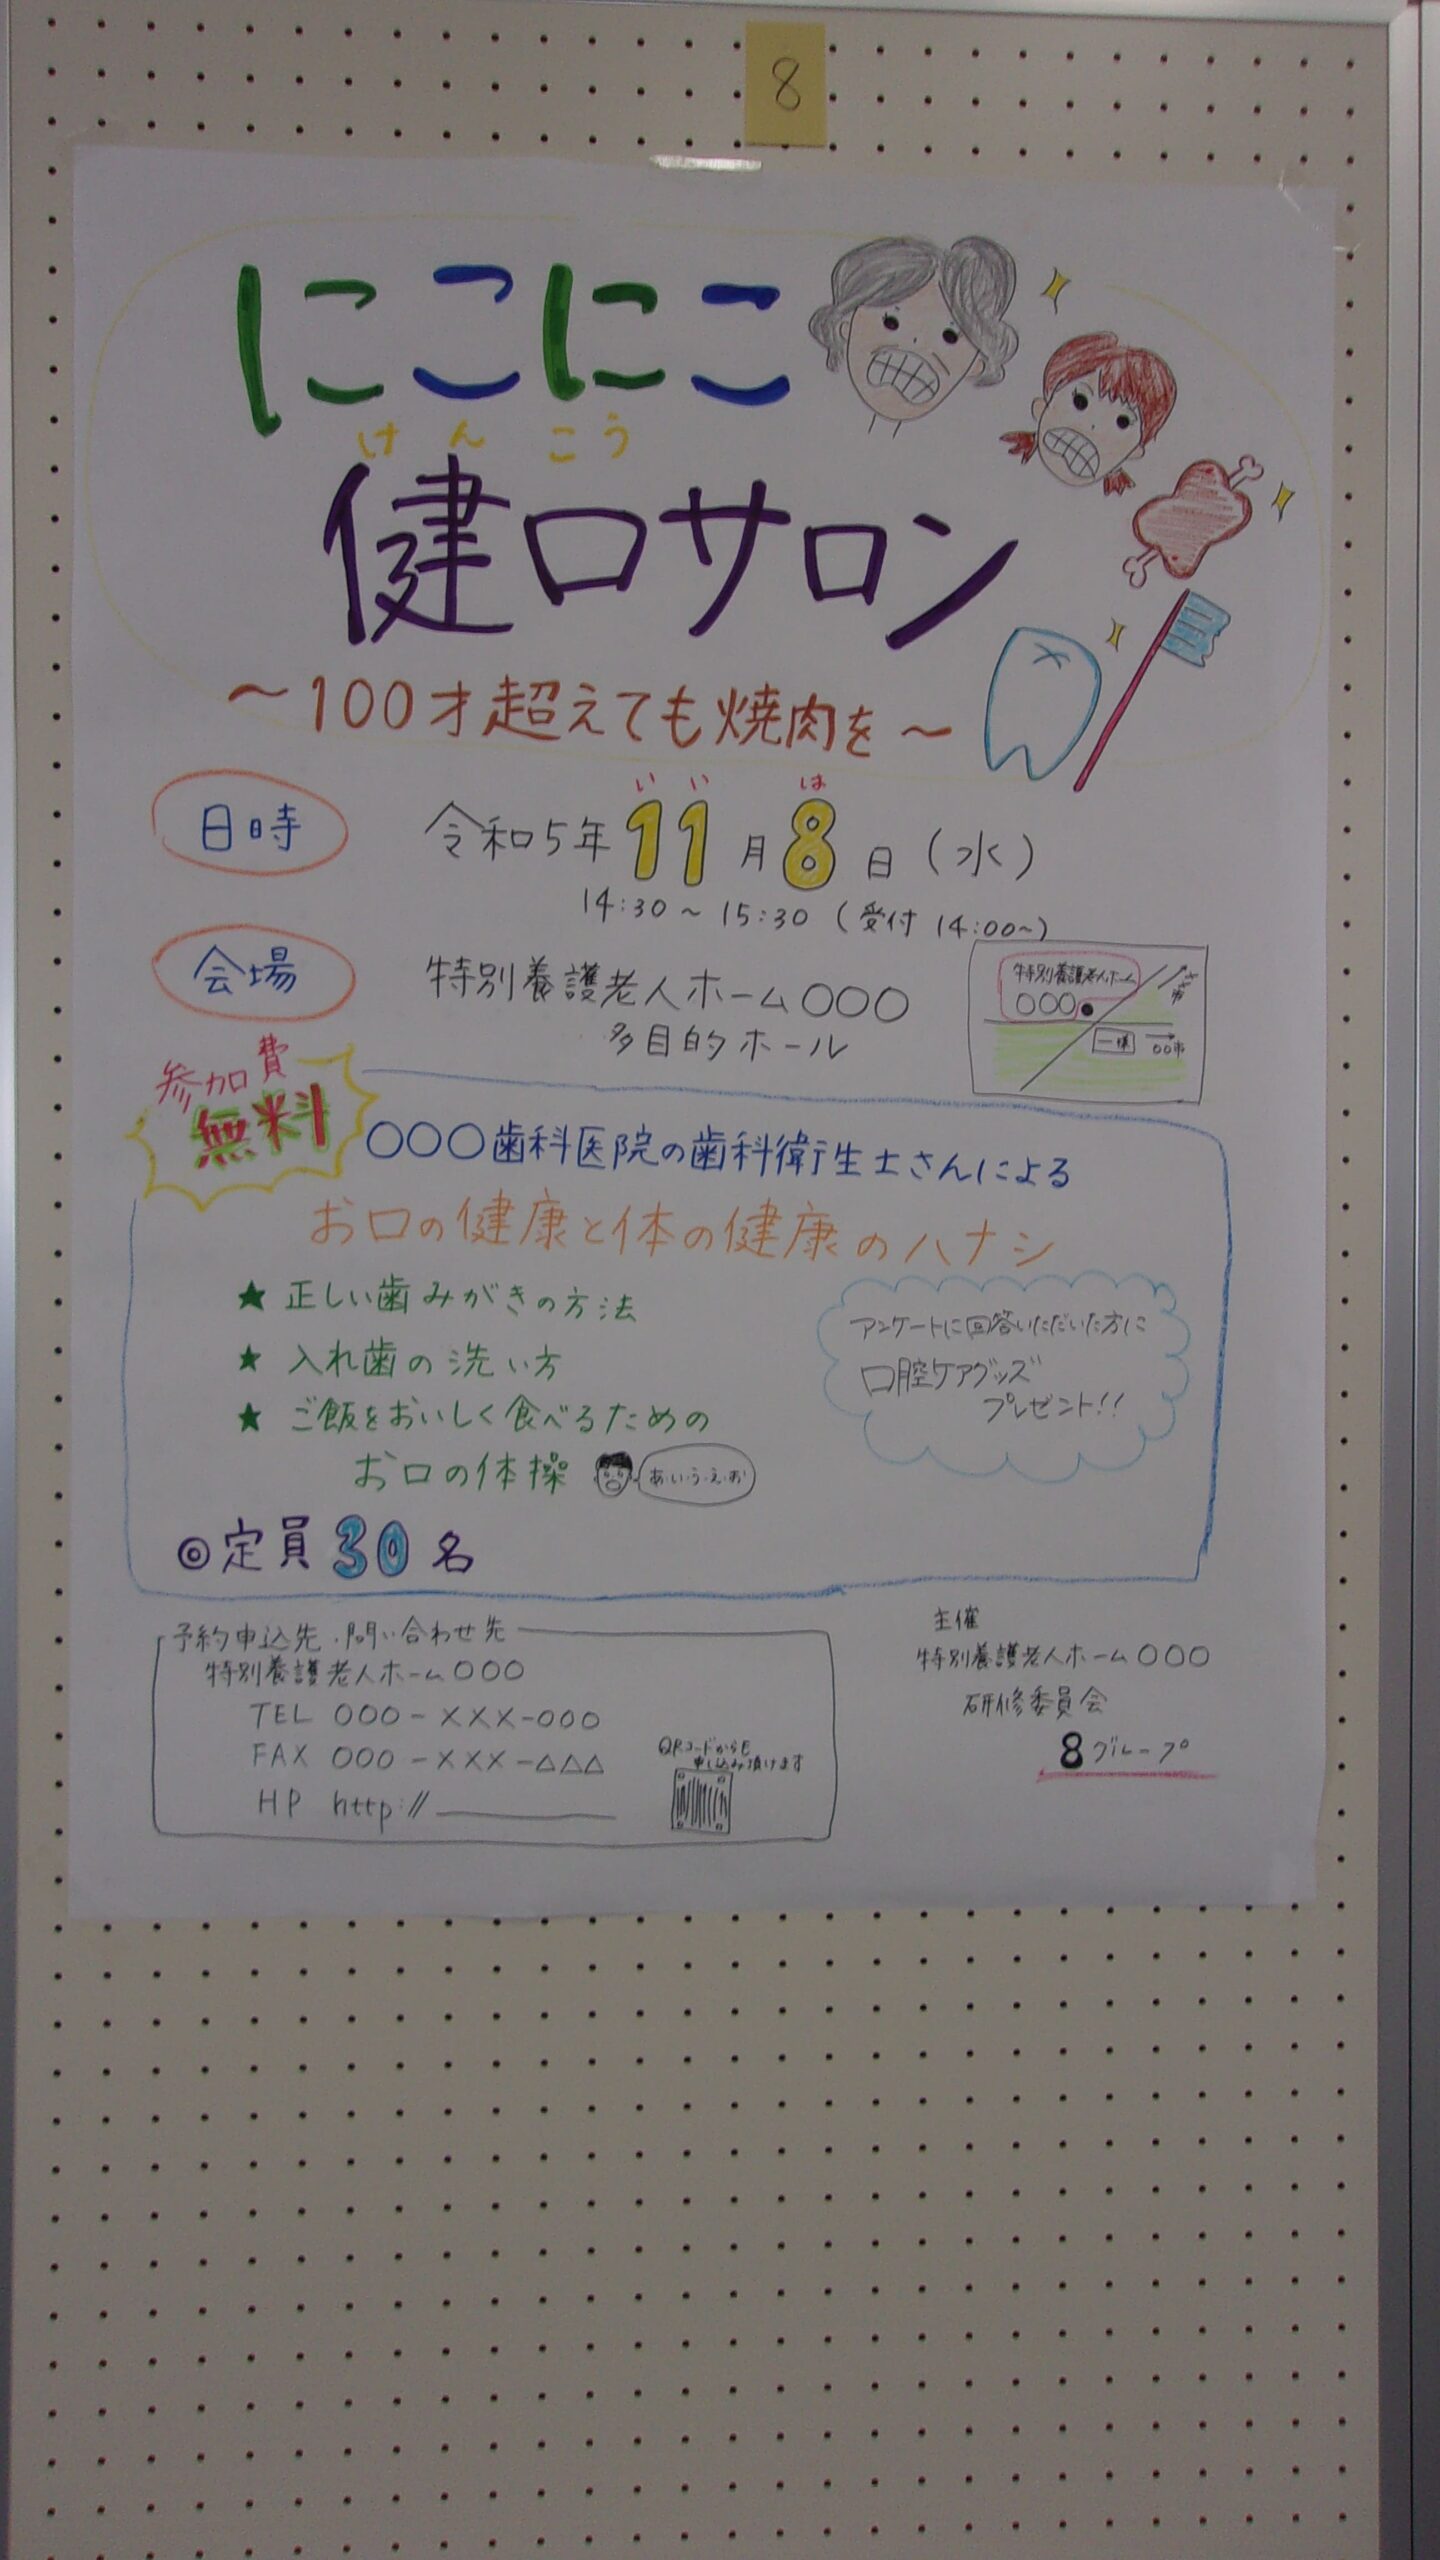 8
にこにこ
けんこう
健口サロン
～100才超えても焼肉を～
いい は
日時 令和5年11月8日(水)
14:30～15:30(受付 14:00～)
会場 特別養護老人ホーム〇〇〇
多目的ホール
特別養護老人ホーム
〇〇〇
〇〇市
参加費
無料
〇〇〇歯科医院の歯科衛生士さんによる
お口の健康と体の健康のハナシ
★ 正しい歯みがきの方法
★ 入れ歯の洗い方
★ ご飯をおいしく食べるための
お口の体操 あ・い・う・え・お
アンケートに回答いただいた方に
口腔ケアグッズ
プレゼント!!
◎定員30名
予約申込先・問い合わせ先
特別養護老人ホーム〇〇〇
TEL 〇〇〇-×××-〇〇〇
FAX 〇〇〇-×××-△△△
HP http://
QRコードからも
申し込み頂けます
主催
特別養護老人ホーム〇〇〇
研修委員会
8グループ